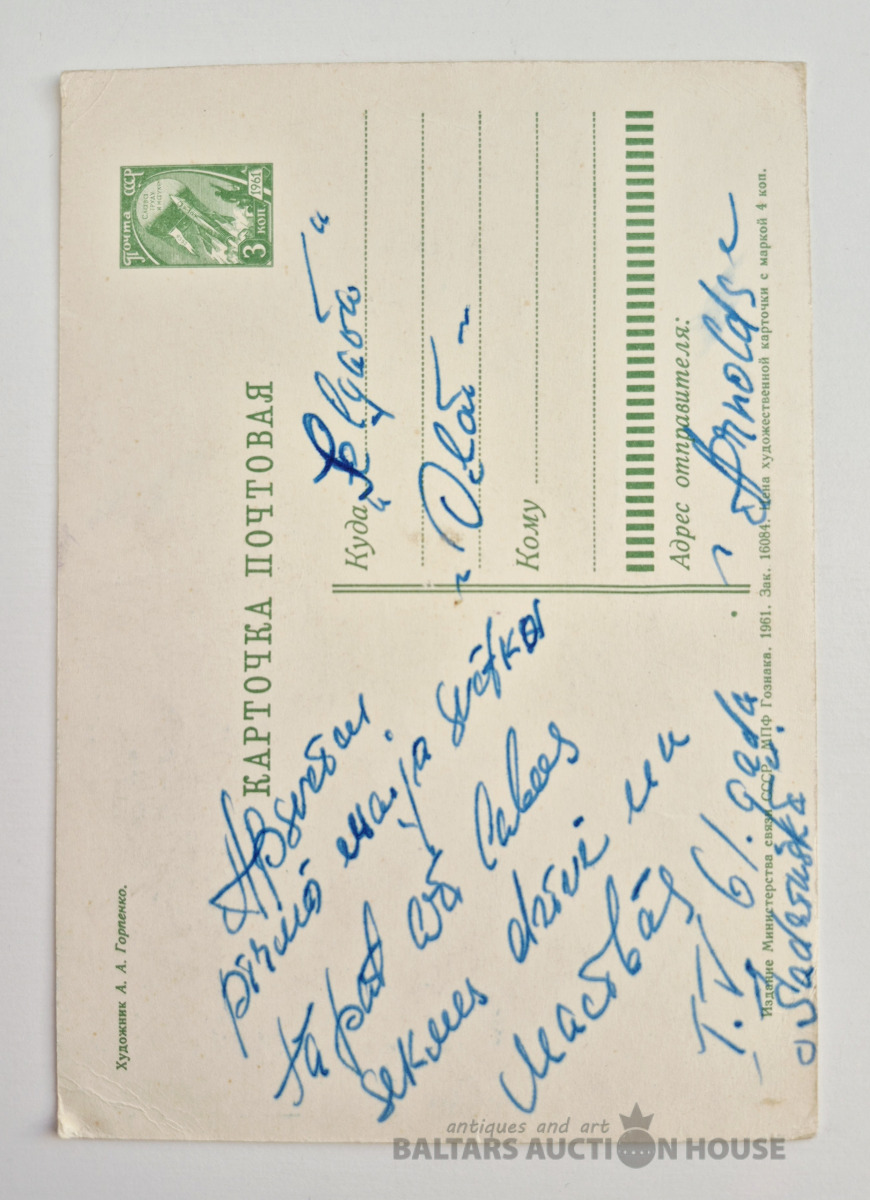 Художник А. А. Горпенко.
Почта СССР
1961
3 коп
КАРТОЧКА ПОЧТОВАЯ
Apsveicu
pirmā maija svētkos
tapat vēl labas
sekmes dzīvē un
mācībās
1.V 61. gadā
Куда „Jelgavā“
Кому
Адрес отправителя:
Arnolds
Издание Министерства связи СССР. МПФ Гознака. 1961. Зак. 16084. Цена художественной карточки с маркой 4 коп.
antiques and art
BALTARS AUCTION HOUSE